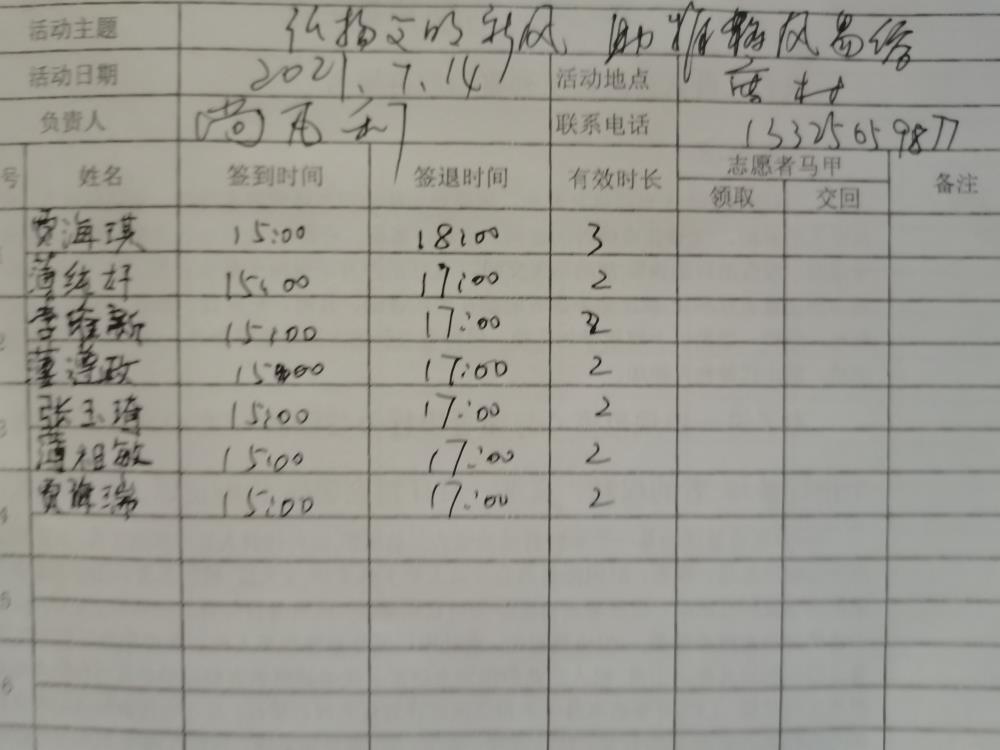 活动主题 弘扬文明新风、助推移风易俗
活动日期 2021.7.14 活动地点 唐村
负责人 尚凡利 联系电话 13325659877
号 姓名 签到时间 签退时间 有效时长 志愿者马甲 备注
领取 交回
贾海琪 15:00 18:00 3
薄纯好 15:00 17:00 2
李维新 15:00 17:00 2
2
薄遵政 15:00 17:00 2
张玉琦 15:00 17:00 2
3
薄祖敏 15:00 17:00 2
贾海瑞 15:00 17:00 2
4
5
6